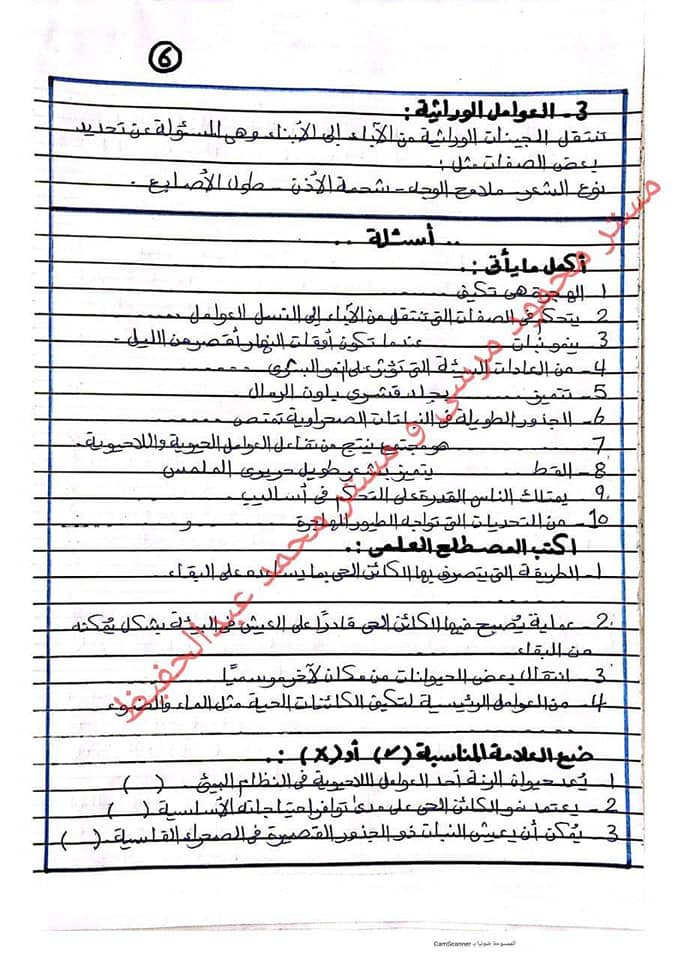 6
3- العوامل الوراثية :
تنتقل الجينات الوراثية من الآباء إلى الأبناء وهى المسئولة عن تحديد
بعض الصفات مثل :
نوع الشعر - ملامح الوجه - شحمة الأذن - طول الأصابع .
.. أسئلة ..
أكمل ما يأتى :.
1 الهجرة هى تكيف ............
2- يتحكم فى الصفات التى تنتقل من الآباء إلى النسل العوامل ............
3- ينمو نبات ............ عندما تكون أوقات النهار أقصر من الليل .
4- من العادات البيئة التى تؤثر على نمو البشرى ............
5- تتميز ............ بجلد قشرى بلون الرمال .
6- الجذور الطويلة فى النباتات الصحراوية تمتص ............
7 ............ هو مجتمع ينتج من تفاعل العوامل الحيوية واللاحيوية .
8- القط ............ يتميز بشعر طويل حريرى الملمس
9. يمتلك الناس القدرة على التحكم فى أساليب ............
10- من التحديات التى تواجه الطيور المهاجرة ............ و ............
اكتب المصطلح العلمى :.
1- الطريقة التى يتصرف بها الكائن الحى بما يساعده على البقاء .
............
2- عملية يُصبح فيها الكائن الحى قادرًا على العيش فى البيئة بشكل يُمكنه
من البقاء ............
3- انتقال بعض الحيوانات من مكان لآخر موسميًا ............
4- من العوامل الرئيسية لتكيف الكائنات الحية مثل الماء والضوء
............
ضع العلامة المناسبة (✓) أو (X) :.
1 يُعد حيوان الرنة أحد العوامل اللاحيوية فى النظام البيئى . ( )
2- يعتمد نمو الكائن الحى على مدى توافر احتياجاته الأساسية ( )
3 يُمكن أن يعيش النبات ذو الجذور القصيرة فى الصحراء القاسية . ( )
مستر محمود مرسى و مستر محمد عبدالحفيظ
الممسوحة ضوئيا بـ CamScanner